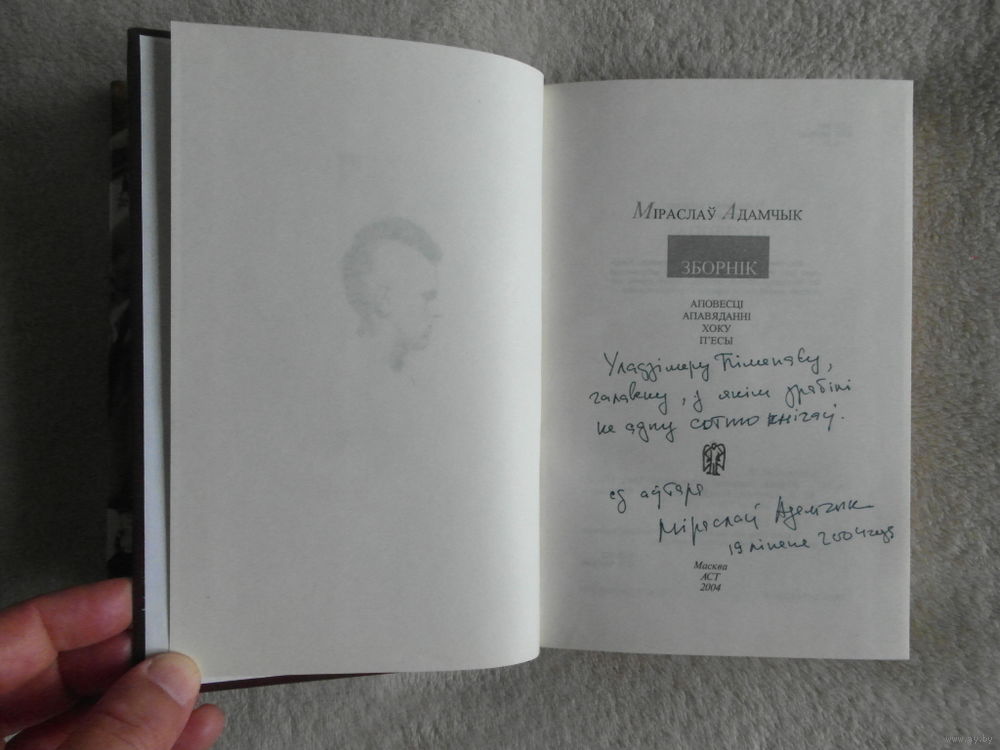 Міраслаў Адамчык
ЗБОРНІК
АПОВЕСЦІ
АПАВЯДАННІ
ХОКУ
П'ЕСЫ
Уладзімеру
з якім зрабілі
не адну сотню кнігаў.
ад аўтара
Міраслаў Адамчык
19 ліпеня 2004 году
Масква
АСТ
2004
www.ay.by